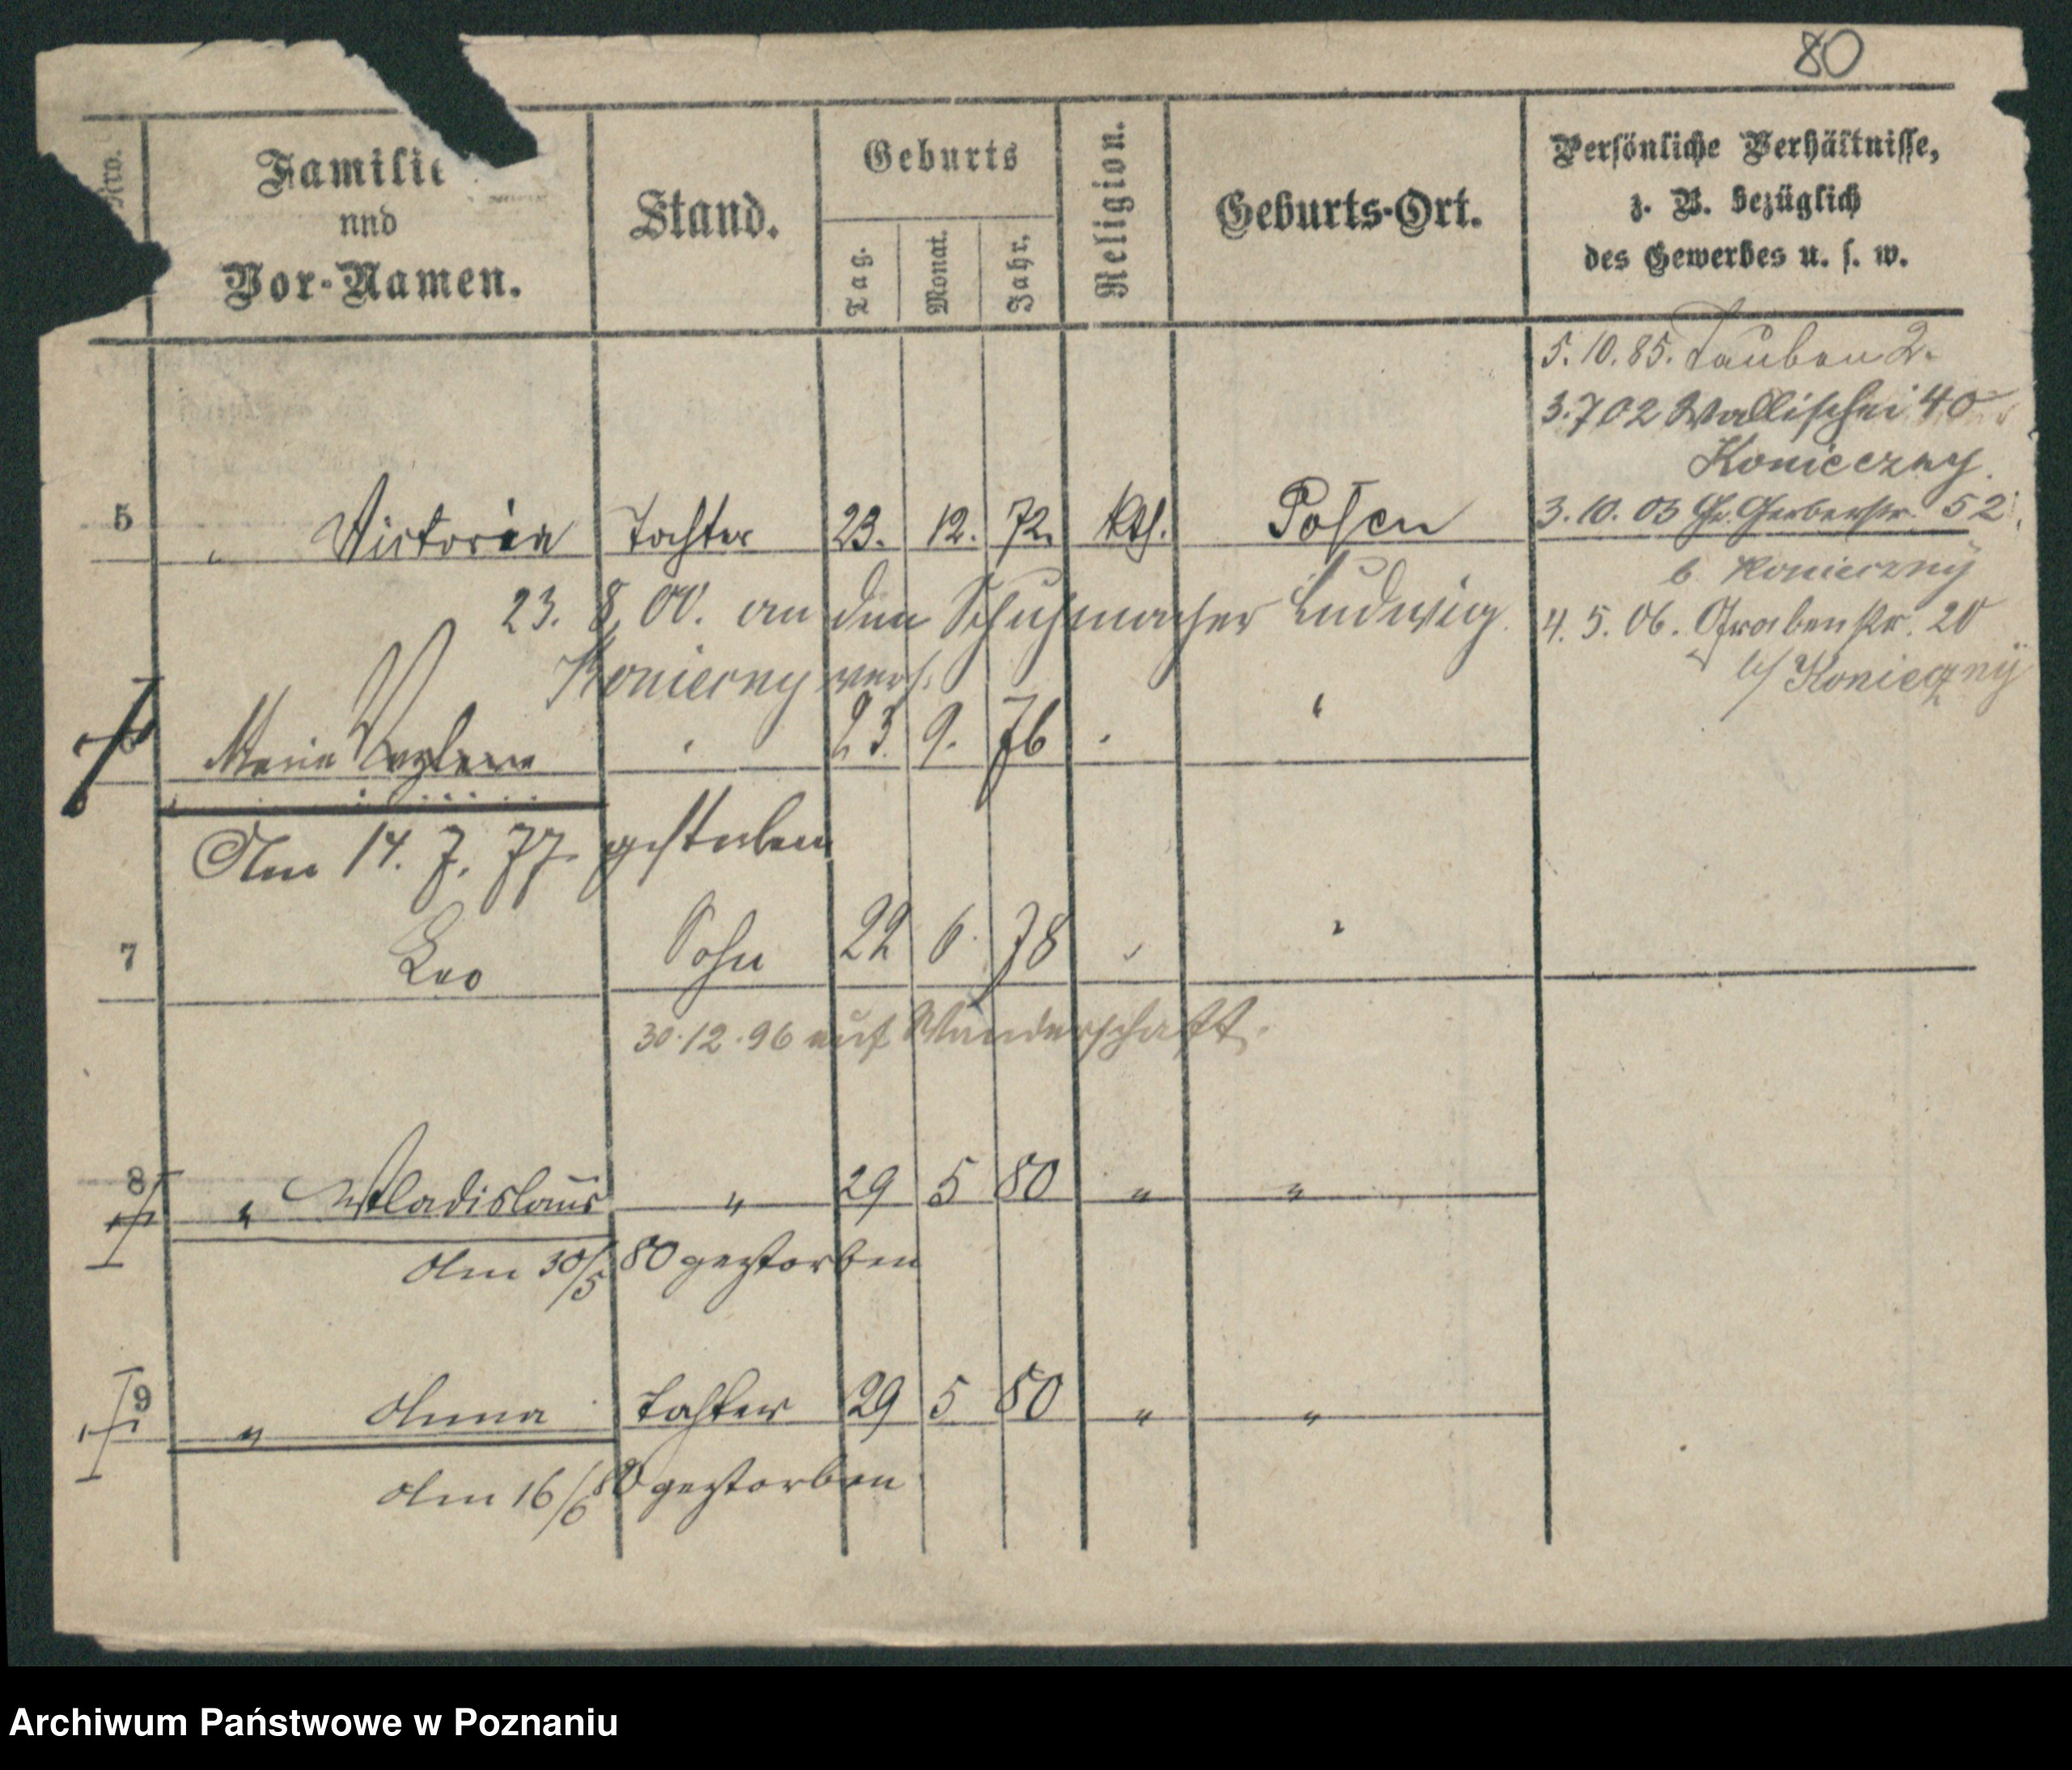 80
Nro.
Familie
und
Vor-Namen.
Stand.
Geburts
Tag.
Monat.
Jahr.
Religion.
Geburts-Ort.
Persönliche Verhältnisse,
z. B. bezüglich
des Gewerbes u. s. w.
5.10.85. Tauben 2.
3.702 Wallischei 40
Konieczny.
5 " Victoria Tochter 23. 12. 72. kth. Posen
3.10.03 Gr. Gerberstr. 52
b Konieczny
23. 8. 00. an den Schuhmacher Ludwig
Konieczny verh.
4. 5. 06. Grabenstr. 20
b/ Konieczny
6 Maria " 23. 9. 76 " "
Am 14. 7. 77 gestorben
7 Leo Sohn 22 6. 78 " "
30.12.96 auf Wanderschaft.
8 " Wladislaus " 29 5 80 " "
Am 30/5 80 gestorben
9 " Anna Tochter 29 5 80 " "
Am 16/6 80 gestorben
Archiwum Państwowe w Poznaniu